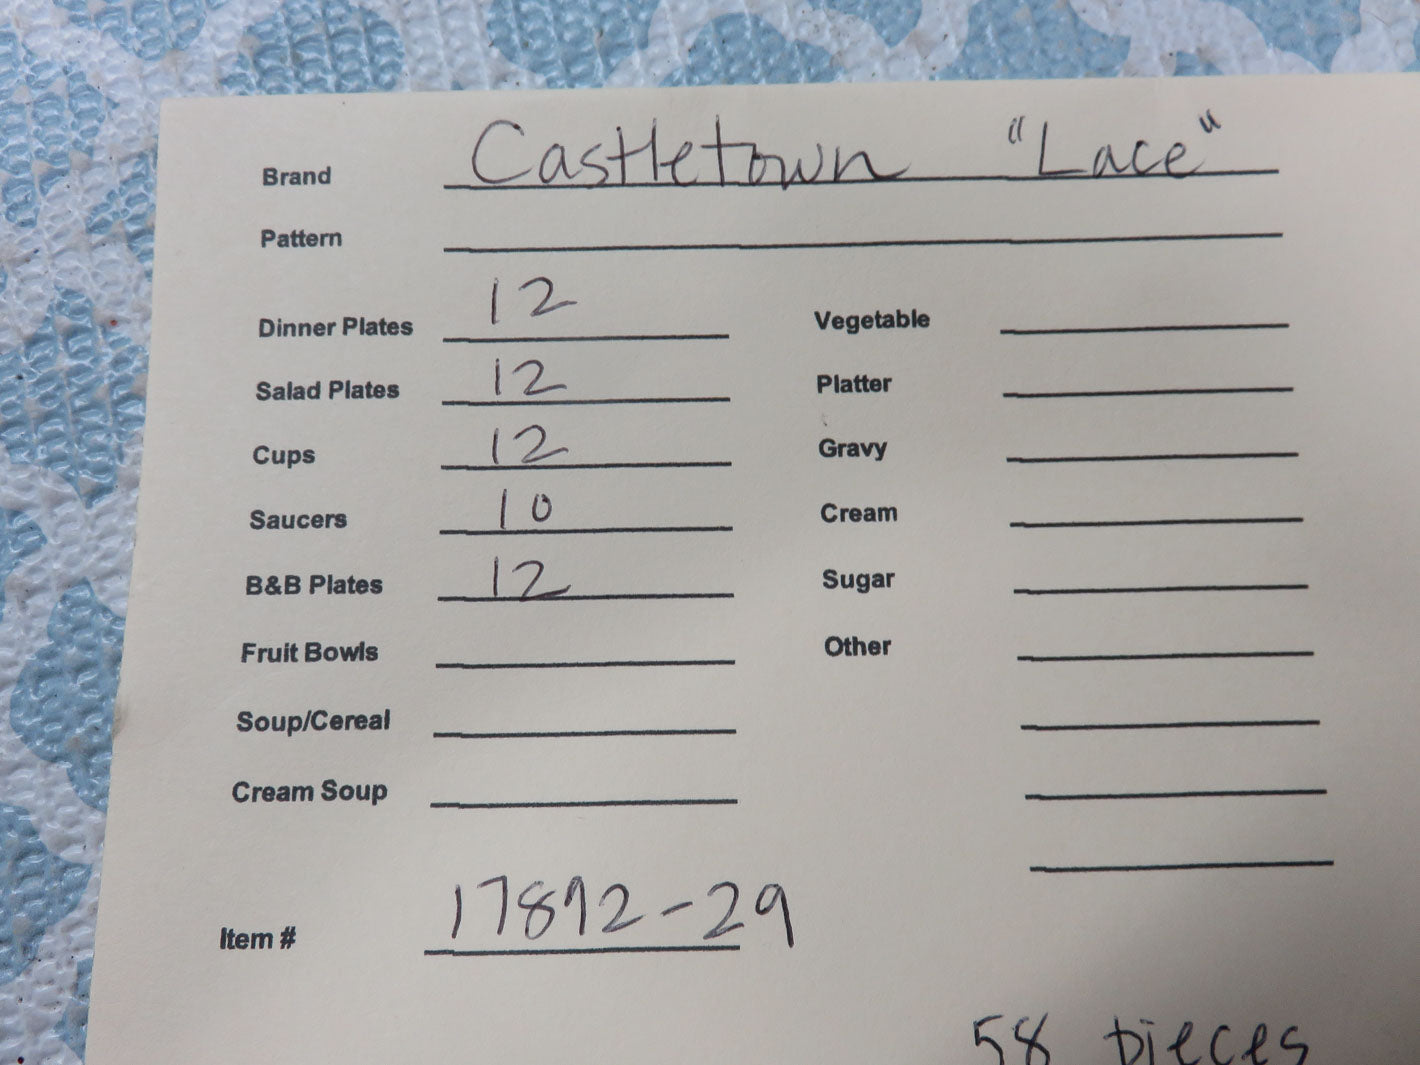 Brand Castletown "Lace"
Pattern
Dinner Plates 12 Vegetable
Salad Plates 12 Platter
Cups 12 Gravy
Saucers 10 Cream
B&B Plates 12 Sugar
Fruit Bowls Other
Soup/Cereal
Cream Soup
Item # 17892-29
58 pieces